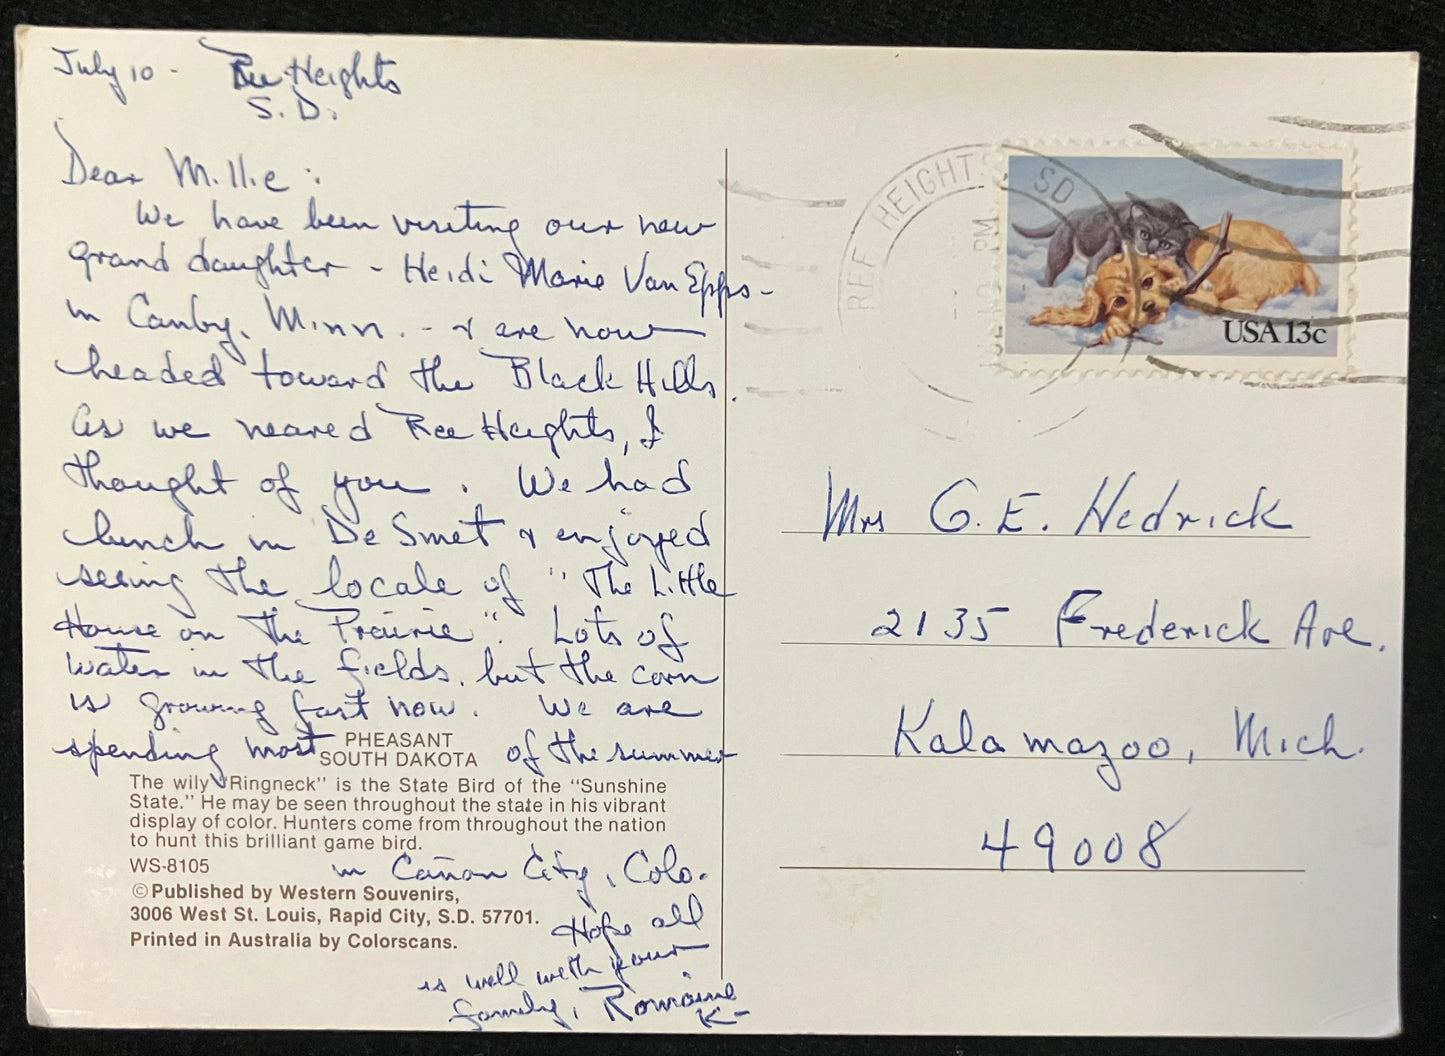 July 10 - Ree Heights
S. D.
Dear Millie :
We have been visiting our new
grand daughter - Heidi Marie Van Epps -
in Canby, Minn. - & are now
headed toward the Black Hills.
As we neared Ree Heights, I
thought of you. We had
lunch in De Smet & enjoyed
seeing the locale of "The Little
House on the Prairie". Lots of
water in the fields, but the corn
is growing fast now. We are
spending most of the summer
PHEASANT
SOUTH DAKOTA
The wily "Ringneck" is the State Bird of the "Sunshine
State." He may be seen throughout the state in his vibrant
display of color. Hunters come from throughout the nation
to hunt this brilliant game bird.
WS-8105
in Cañon City, Colo.
©Published by Western Souvenirs,
3006 West St. Louis, Rapid City, S.D. 57701.
Printed in Australia by Colorscans.
Hope all
is well with your
family, Romaine
K-
REE HEIGHTS SD
PM
USA 13c
Mrs G. E. Hedrick
2135 Frederick Ave.
Kalamazoo, Mich.
49008